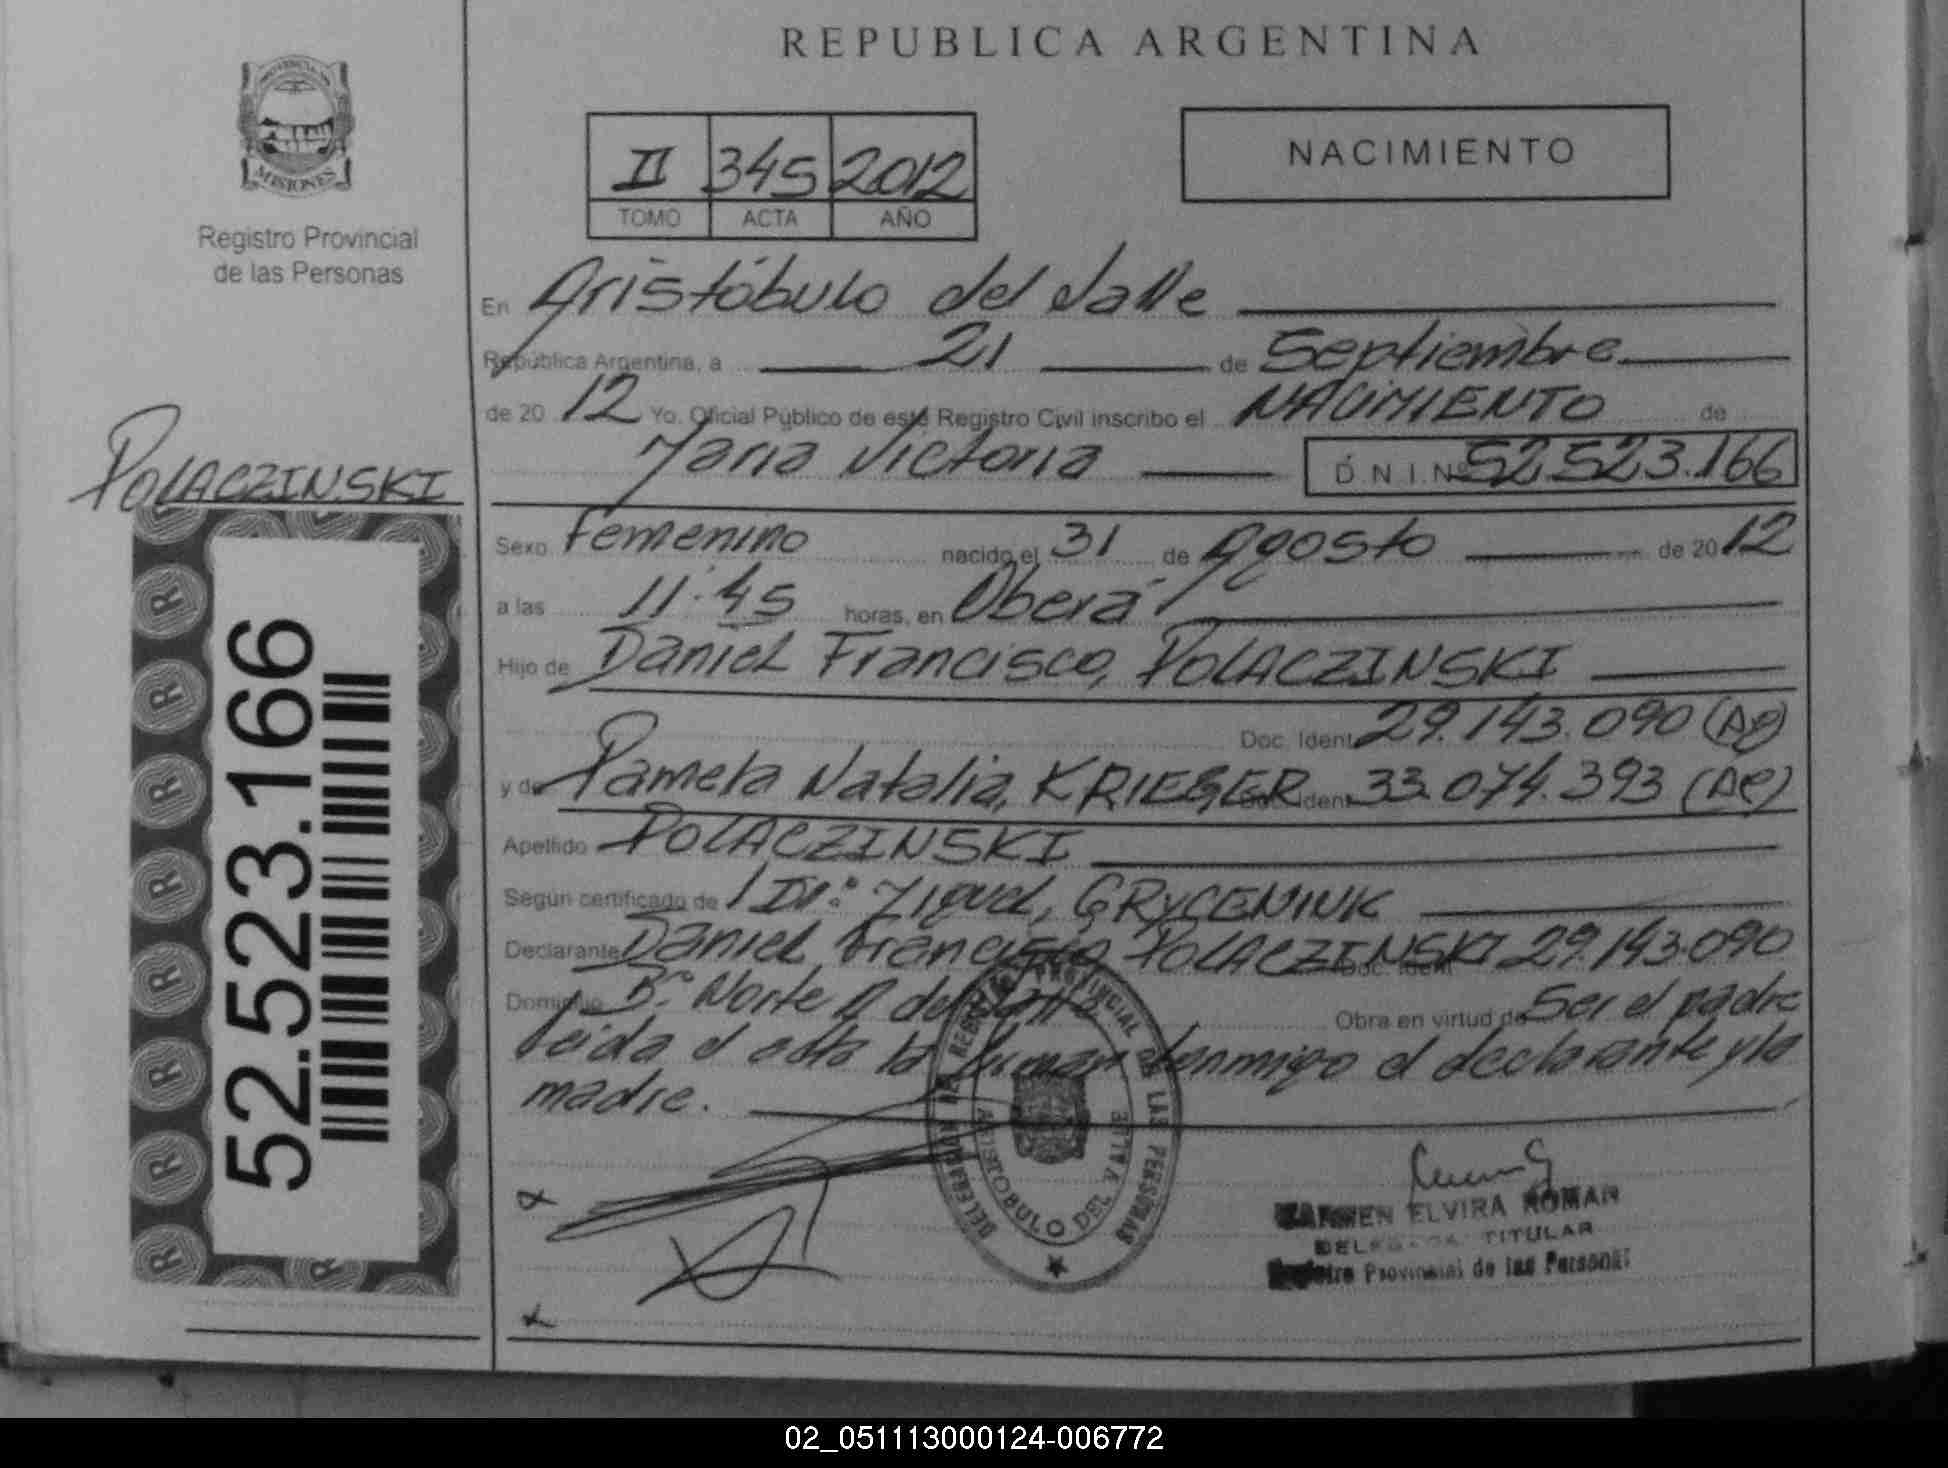 REPUBLICA ARGENTINA
MISIONES
Registro Provincial
de las Personas
II 345 2012
TOMO ACTA AÑO
NACIMIENTO
En Aristóbulo del Valle
República Argentina, a 21 de Septiembre
de 2012 Yo. Oficial Público de este Registro Civil inscribo el NACIMIENTO de
Maria Victoria D.N.I.Nº 52.523.166
POLACZINSKI
Sexo Femenino nacido el 31 de Agosto de 2012
a las 11:45 horas, en Oberá
Hijo de Daniel Francisco, POLACZINSKI
Doc. Ident 29.143.090 (Ae)
y de Pamela Natalia, KRIEGER Doc. Ident 33.074.393 (Ae)
Apellido POLACZINSKI
Según certificado de Dr.: Miguel, GRYCENIUK
Declarante Daniel Francisco POLACZINSKI Doc. Ident 29.143.090
Domicilio Bº Norte A del Obra en virtud de Ser el padre
leida el acta la firman conmigo el declarante y la
madre.
52.523.166
REGISTRO PROVINCIAL DE LAS PERSONAS
ARISTOBULO DEL VALLE
CARMEN ELVIRA ROMAN
DELEGADA TITULAR
Registro Provincial de las Personas
02_051113000124-006772